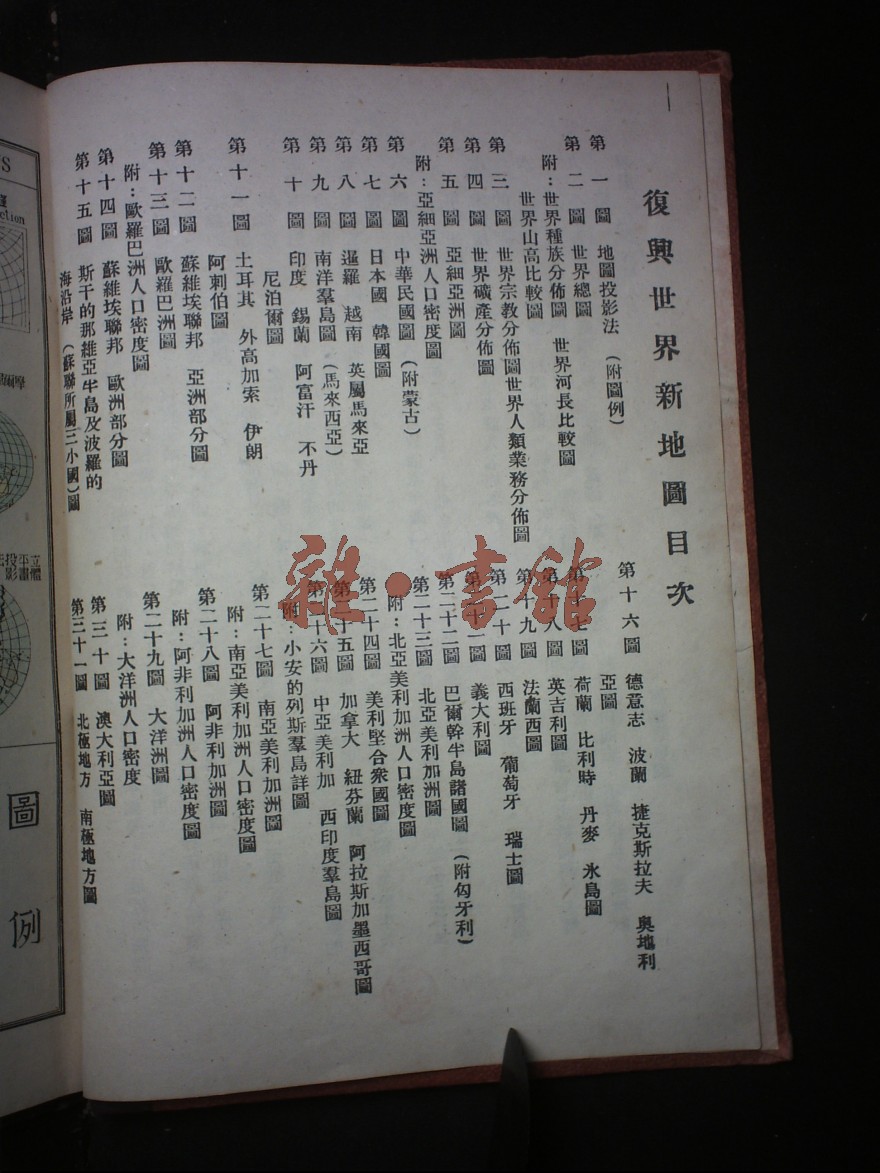 復興世界新地圖目次
第一圖 地圖投影法 (附圖例)
第二圖 世界總圖
附：世界種族分佈圖 世界河長比較圖
世界山高比較圖
第三圖 世界宗教分佈圖世界人類業務分佈圖
第四圖 世界礦產分佈圖
第五圖 亞細亞洲圖
附：亞細亞洲人口密度圖
第六圖 中華民國圖 (附蒙古)
第七圖 日本國 韓國圖
第八圖 暹羅 越南 英屬馬來亞
第九圖 南洋羣島圖 (馬來西亞)
第十圖 印度 錫蘭 阿富汗 不丹
尼泊爾圖
第十一圖 土耳其 外高加索 伊朗
阿剌伯圖
第十二圖 蘇維埃聯邦 亞洲部分圖
第十三圖 歐羅巴洲圖
附：歐羅巴洲人口密度圖
第十四圖 蘇維埃聯邦 歐洲部分圖
第十五圖 斯干的那維亞半島及波羅的
海沿岸 (蘇聯所屬三小國)圖
第十六圖 德意志 波蘭 捷克斯拉夫 奧地利
亞圖
第十七圖 荷蘭 比利時 丹麥 氷島圖
第十八圖 英吉利圖
第十九圖 法蘭西圖
第二十圖 西班牙 葡萄牙 瑞士圖
第二十一圖 義大利圖
第二十二圖 巴爾幹半島諸國圖 (附匈牙利)
第二十三圖 北亞美利加洲圖
附：北亞美利加洲人口密度圖
第二十四圖 美利堅合衆國圖
第二十五圖 加拿大 紐芬蘭 阿拉斯加墨西哥圖
第二十六圖 中亞美利加 西印度羣島圖
附：小安的列斯羣島詳圖
第二十七圖 南亞美利加洲圖
附：南亞美利加洲人口密度圖
第二十八圖 阿非利加洲圖
附：阿非利加洲人口密度圖
第二十九圖 大洋洲圖
附：大洋洲人口密度
第三十圖 澳大利亞圖
第三十一圖 北極地方 南極地方圖
雜·書館
圖例
立體平畫投影